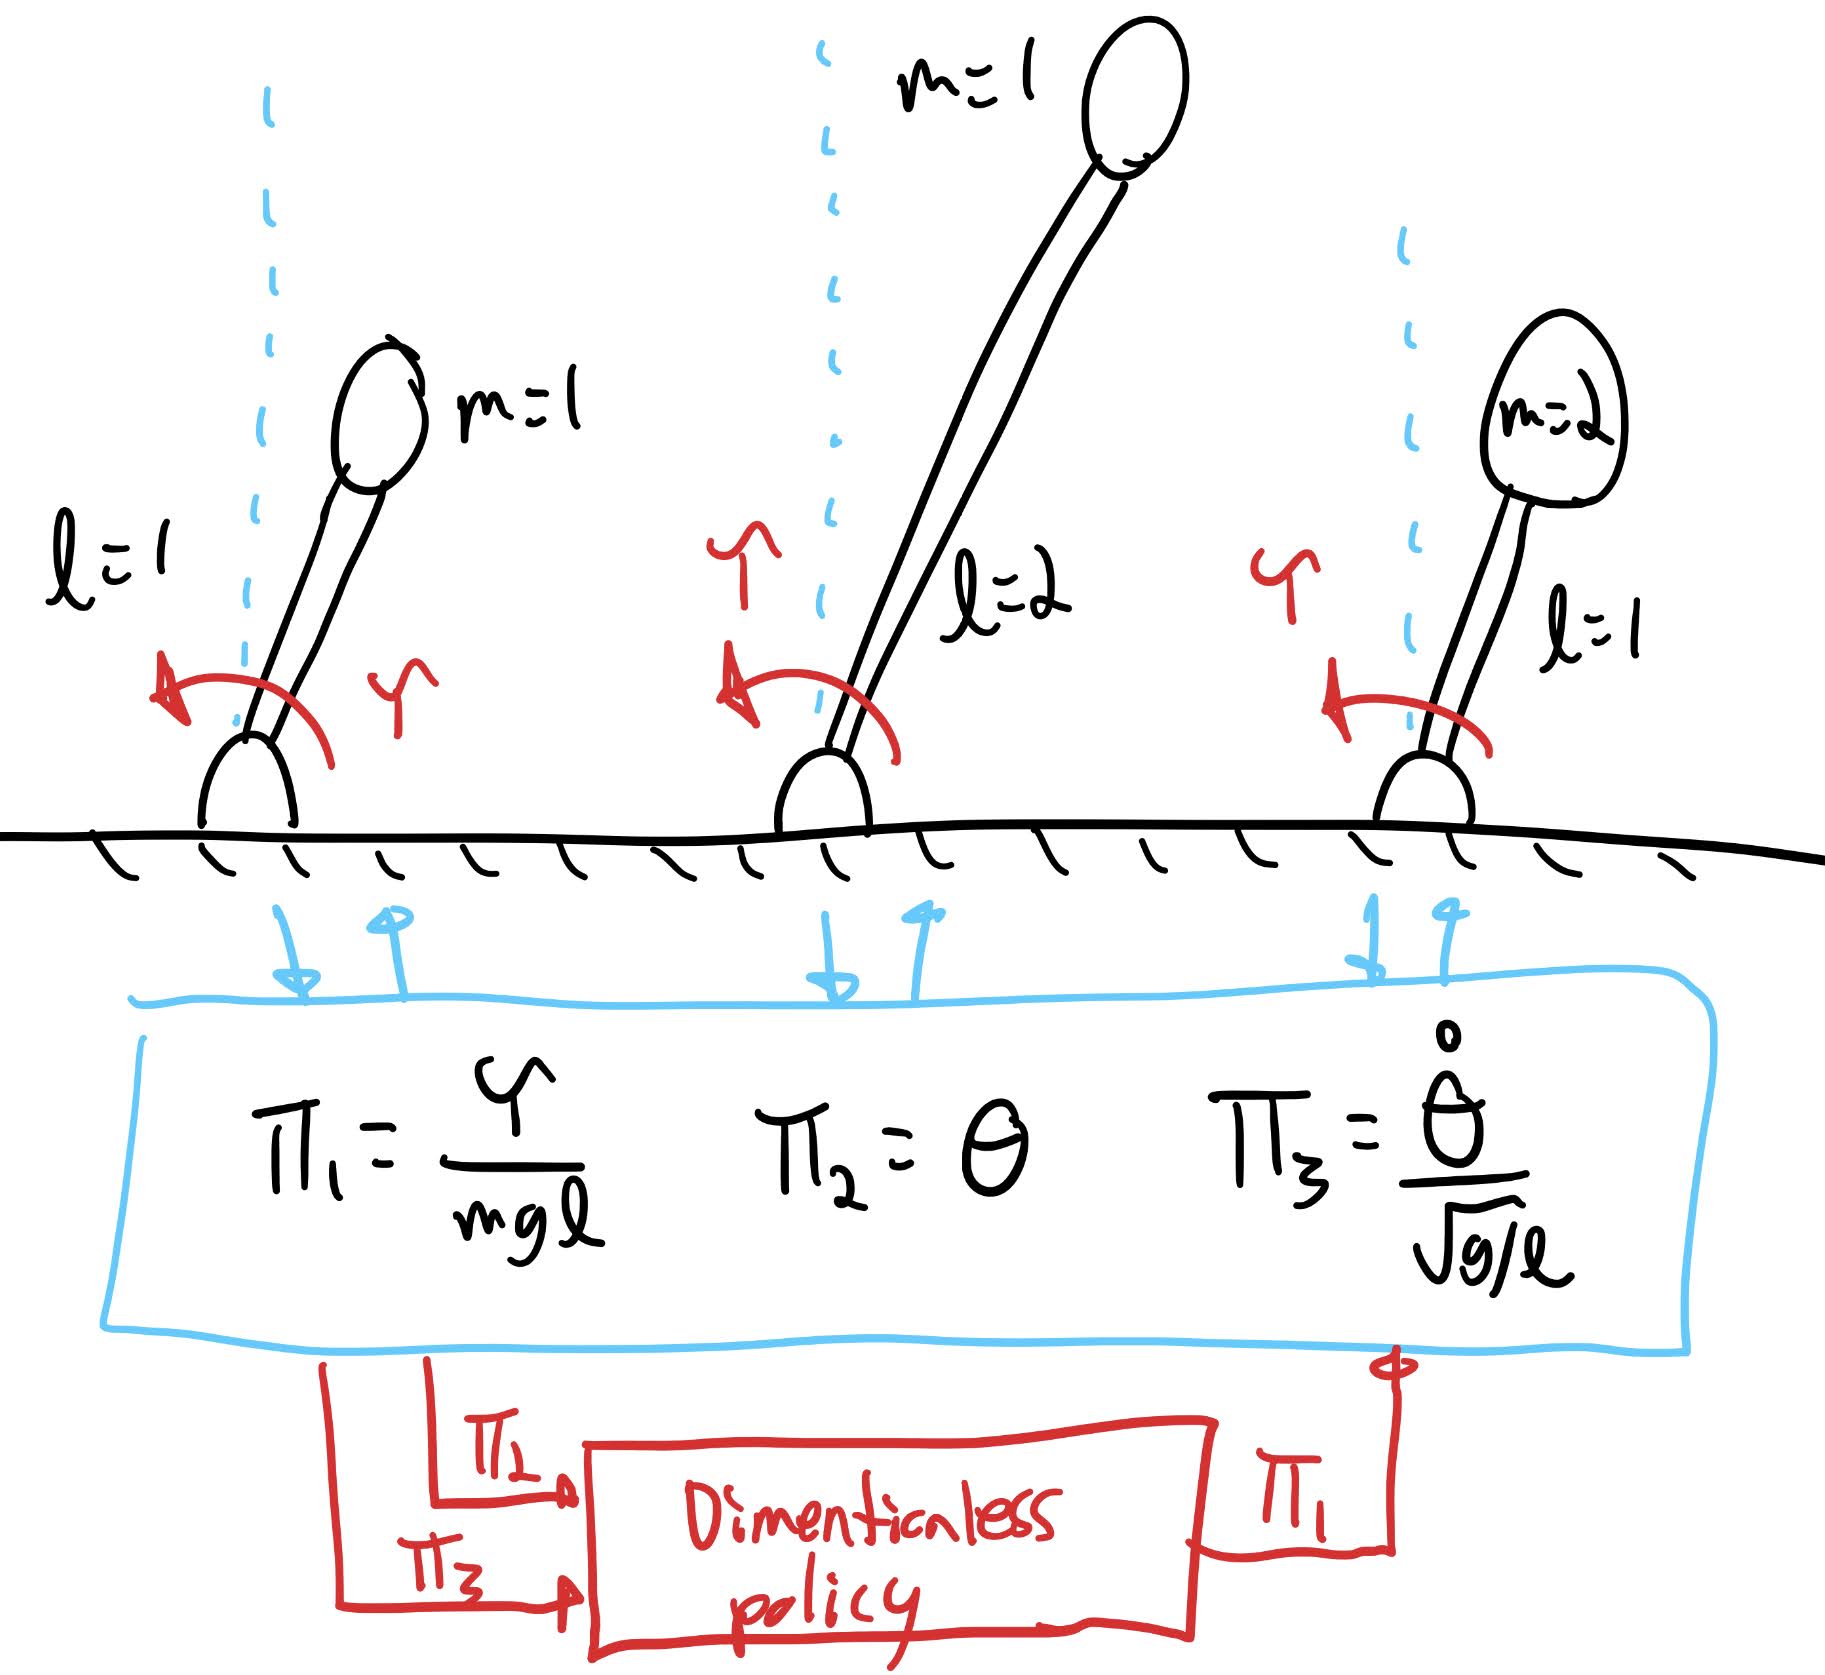 m=1
m=1
m=2
l=1
τ
τ
l=2
τ
l=1
Π₁ = τ/mgl
Π₂ = θ
Π₃ = θ̇/√g/l
Π₂
Π₃
Dimenticnless
policy
Π₁